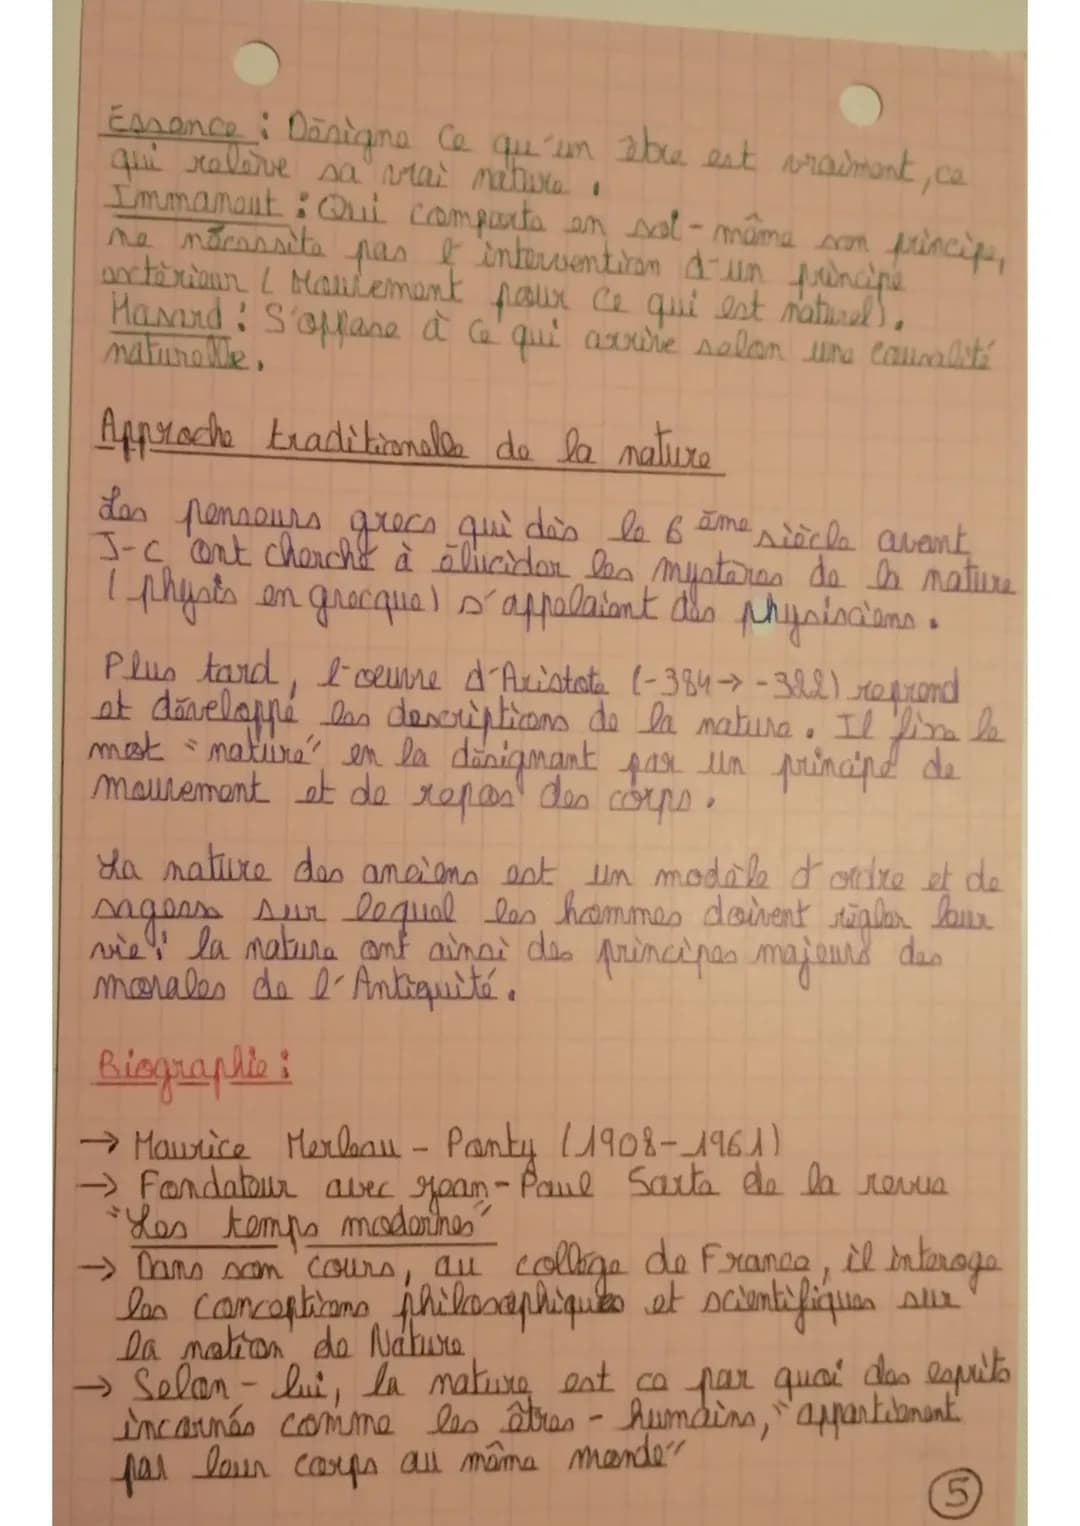 Essence : Désigne ce qu'un être est vraiment, ce
qui relève sa vrai nature.
Immanent : Qui comporte en soi-même son principe,
ne nécessite pas l'intervention d'un principe
extérieur (Mouvement pour ce qui est naturel).
Hasard : S'oppose à ce qui arrive selon une causalité
naturelle.
Approche traditionelle de la nature
Les penseurs grecs qui dès le 6 ème siècle avant
J-C ont cherché à élucider les mystères de la nature
(physis en grecque) s'appelaient des physisciens.
Plus tard, l'oeuvre d'Aristote (-384→ -322) reprend
et développé les descriptions de la nature. Il fixe le
mot "nature" en la désignant par un principe de
mouvement et de repos des corps.
La nature des anciens est un modèle d'ordre et de
sagesse sur lequel les hommes doivent régler leur
vie : la nature ont ainsi des principes majeurs des
morales de l'Antiquité.
Biographie :
→ Maurice Merleau - Ponty (1908-1961)
→ Fondateur avec Jean-Paul Sarte de la revue
"Les temps modernes"
→ Dans son cours, au collège de France, il interoge
les conceptions philosophiques et scientifiques sur
la notion de Nature
→ Selon - lui, la nature est ce par quoi des esprits
incarnés comme les êtres - humains, "appartiennent
par leur corps au même monde"
5